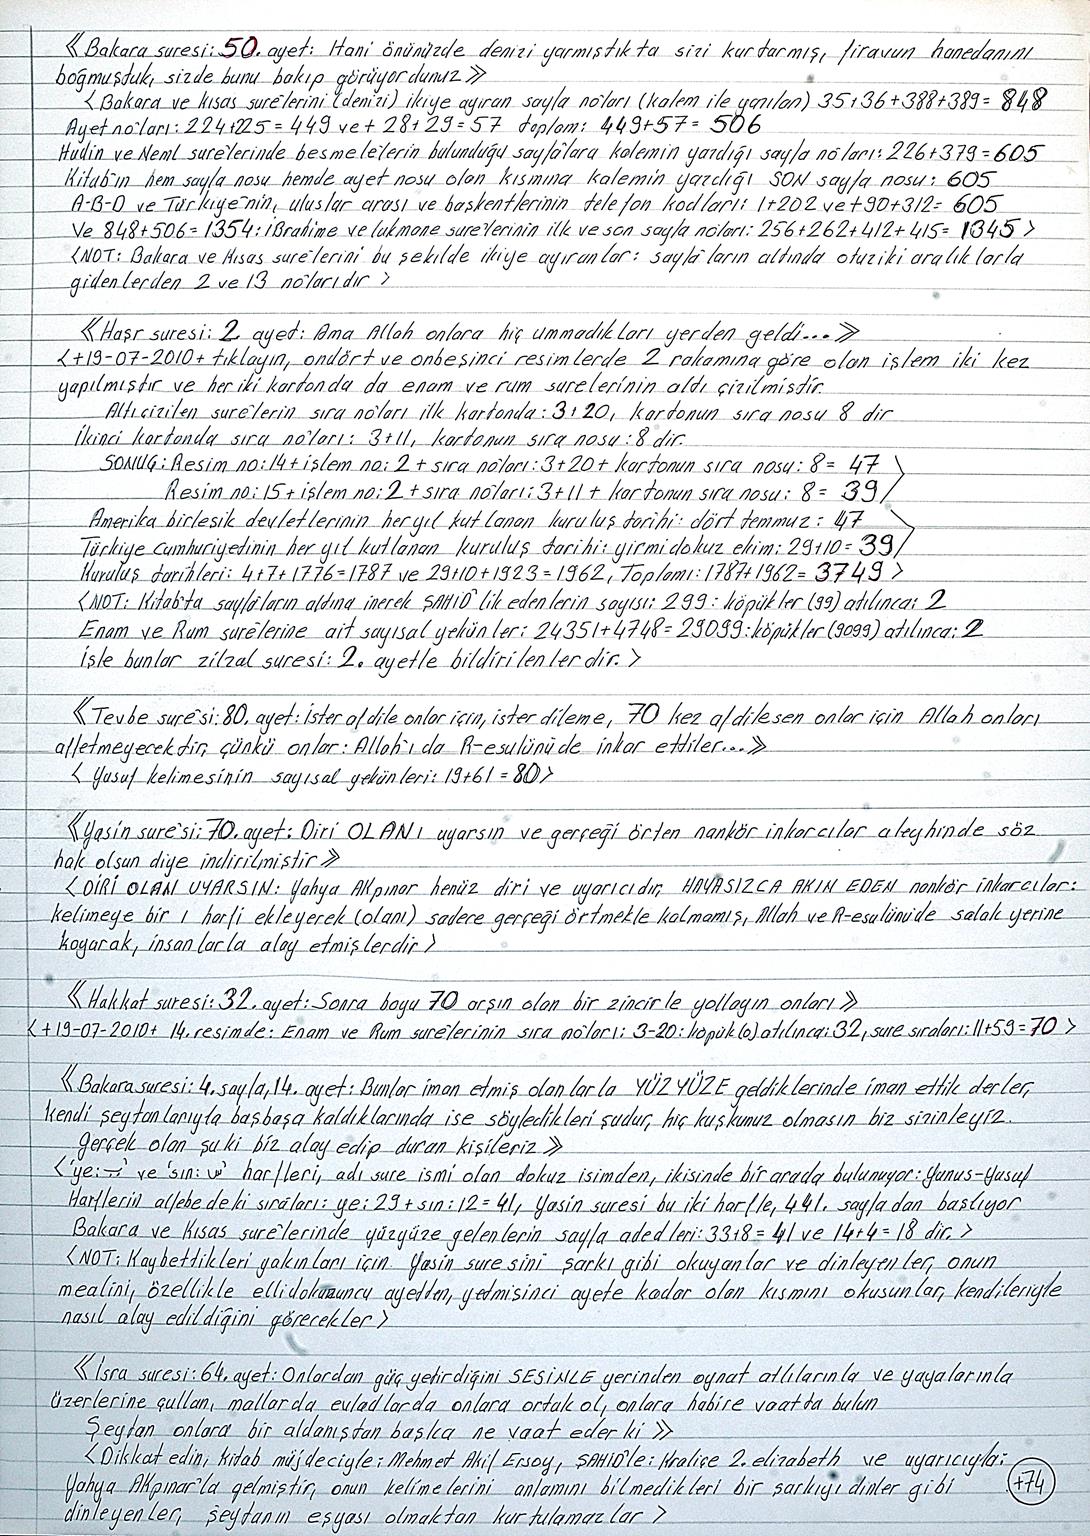 《Bakara suresi: 50. ayet: Hani önünüzde denizi yarmıştıkta sizi kurtarmış, firavun hanedanını
boğmuştuk, sizde bunu bakıp görüyordunuz》
<Bakara ve Kısas sure'lerini (denizi) ikiye ayıran sayfa no'ları (kalem ile yazılan) 35+36+388+389= 848
Ayet no'ları: 224+225= 449 ve+ 28+29=57 toplam: 449+57= 506
Hudin ve Neml sure'lerinde besmele'lerin bulunduğu sayfa'lara kalemin yazdığı sayfa no'ları: 226+379=605
Kitab'ın hem sayfa nosu hemde ayet nosu olan kısmına kalemin yazdığı SON sayfa nosu: 605
A-B-D ve Türkiye'nin, uluslar arası ve başkentlerinin telefon kodları: 1+202 ve+90+312= 605
Ve 848+506=1354: ibrahime ve lukmane sure'lerinin ilk ve son sayfa no'ları: 256+262+412+415= 1345>
<NOT: Bakara ve Kısas sure'lerini bu şekilde ikiye ayıranlar: sayfa'ların altında otuziki aralıklarla
gidenlerden 2 ve 13 no'larıdır >
《Haşr suresi: 2. ayet: Ama Allah onlara hiç ummadıkları yerden geldi...》
<+19-07-2010+ tıklayın, ondört ve onbeşinci resimlerde 2 rakamına göre olan işlem iki kez
yapılmıştır ve her iki kartonda da enam ve rum surelerinin altı çizilmiştir.
Altı çizilen sure'lerin sıra no'ları ilk kartonda: 3+20, kartonun sıra nosu 8 dir
ikinci kartonda sıra no'ları: 3+11, kartonun sıra nosu: 8 dir.
SONUÇ: Resim no: 14+işlem no: 2+ sıra no'ları: 3+20+ kartonun sıra nosu: 8= 47
Resim no: 15+işlem no: 2+ sıra no'ları: 3+11+ kartonun sıra nosu: 8= 39
Amerika birleşik devletlerinin her yıl kutlanan kuruluş tarihi: dört temmuz: 47
Türkiye cumhuriyetinin her yıl kutlanan kuruluş tarihi: yirmidokuz ekim: 29+10= 39
Kuruluş tarihleri: 4+7+1776=1787 ve 29+10+1923=1962, Toplamı: 1787+1962= 3749>
<NOT: Kitab'ta sayfa'ların altına inerek ŞAHİD'lik edenlerin sayısı: 299: köpükler (99) atılınca: 2
Enam ve Rum sure'lerine ait sayısal yekünler: 24351+4748=29099: köpükler (9099) atılınca: 2
işte bunlar zilzal suresi: 2. ayetle bildirilenlerdir.>
《Tevbe sure'si: 80. ayet: ister af dile onlar için, ister dileme, 70 kez af dilesen onlar için Allah onları
affetmeyecektir, çünkü onlar: Allah'ı da R-esulünü de inkar ettiler...》
<Yusuf kelimesinin sayısal yekünleri: 19+61=80>
《Yasin sure'si: 70. ayet: Diri OLANI uyarsın ve gerçeği örten nankör inkarcılar aleyhinde söz
hak olsun diye indirilmiştir》
<DİRİ OLAN UYARSIN: Yahya AKpınar henüz diri ve uyarıcıdır, HAYASIZCA AKIN EDEN nankör inkarcılar:
kelimeye bir ı harfi ekleyerek (olanı) sadece gerçeği örtmekle kalmamış, Allah ve R-esulünüde salak yerine
koyarak, insanlarla alay etmişlerdir>
《Hakkat suresi: 32. ayet: Sonra boyu 70 arşın olan bir zincirle yollayın onları》
<+19-07-2010+ 14. resimde: Enam ve Rum sure'lerinin sıra no'ları: 3-20: köpük (0) atılınca: 32, sure sıraları: 11+59=70 >
《Bakara suresi: 4. sayfa, 14. ayet: Bunlar iman etmiş olanlarla YÜZYÜZE geldiklerinde iman ettik derler,
kendi şeytanlarıyla başbaşa kaldıklarında ise söyledikleri şudur, hiç kuşkunuz olmasın biz sizinleyiz.
Gerçek olan şu ki biz alay edip duran kişileriz》
<'ye: ي' ve 'sin: س' harfleri, adı sure ismi olan dokuz isimden, ikisinde bir arada bulunuyor: Yunus-Yusuf
Harflerin alfebedeki sıraları: ye: 29+sin: 12=41, Yasin suresi bu iki harfle, 441. sayfadan başlıyor
Bakara ve Kısas sure'lerinde yüzyüze gelenlerin sayfa adedleri: 33+8=41 ve 14+4=18 dir. >
<NOT: Kaybettikleri yakınları için Yasin suresini şarkı gibi okuyanlar ve dinleyenler, onun
mealini, özellikle ellidokuzuncu ayetten, yetmişinci ayete kadar olan kısmını okusunlar, kendileriyle
nasıl alay edildiğini görecekler>
《İsra suresi: 64. ayet: Onlardan güç yetirdiğini SESİNLE yerinden oynat atlılarınla ve yayalarınla
üzerlerine çullan, mallarda evladlarda onlara ortak ol, onlara habire vaatta bulun
Şeytan onlara bir aldanıştan başka ne vaat eder ki》
<Dikkat edin, kitab müjdeciyle: Mehmet Akif Ersoy, ŞAHİD'le: Kraliçe 2. elizabeth ve uyarıcıyla:
Yahya AKpınar'la gelmiştir, onun kelimelerini anlamını bilmedikleri bir şarkıyı dinler gibi
dinleyenler, şeytanın eşyası olmaktan kurtulamazlar>
+74